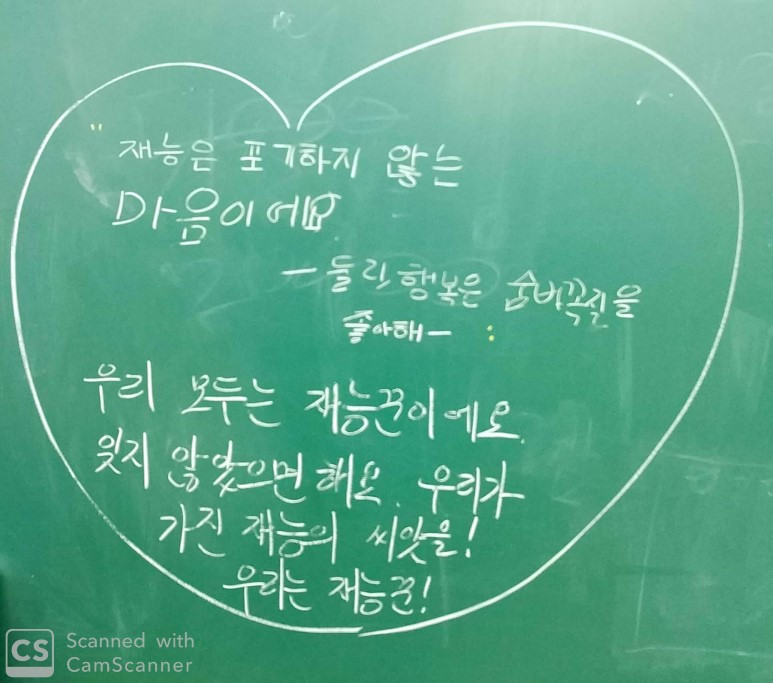 " 재능은 포기하지 않는
마음이에요
- 들 행복은 숨바꼭질을
좋아해 -
우리 모두는 재능꾼이에요.
잊지 않았으면 해요. 우리가
가진 재능의 씨앗을!
우리는 재능꾼!
CS Scanned with
CamScanner